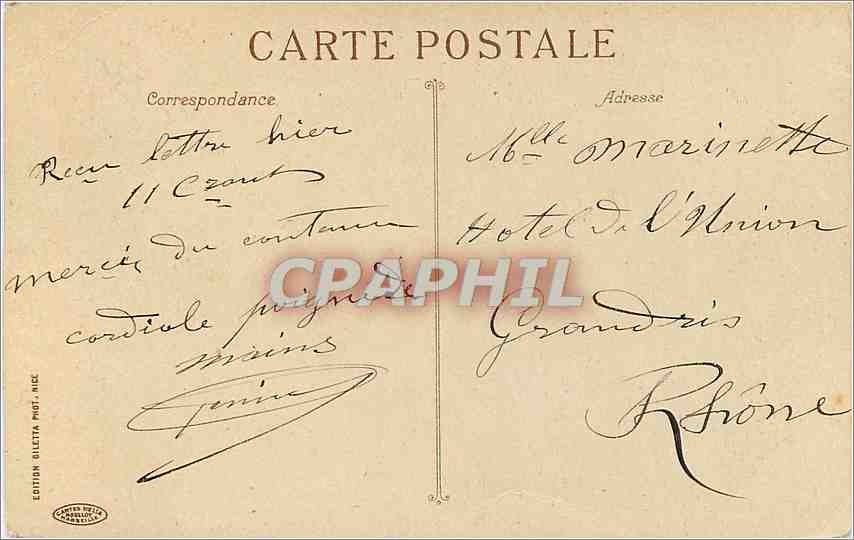 CARTE POSTALE
Correspondance
Adresse
Recu lettre hier
11 Crt
mercie du contenu
cordiale poignede
mains
Mlle marinette
Hotel De l'Union
Grandris
Rhône
CPAPHIL
EDITION GILETTA PHOT., NICE
CARTES NELLA
MOULLOT
MARSEILLE